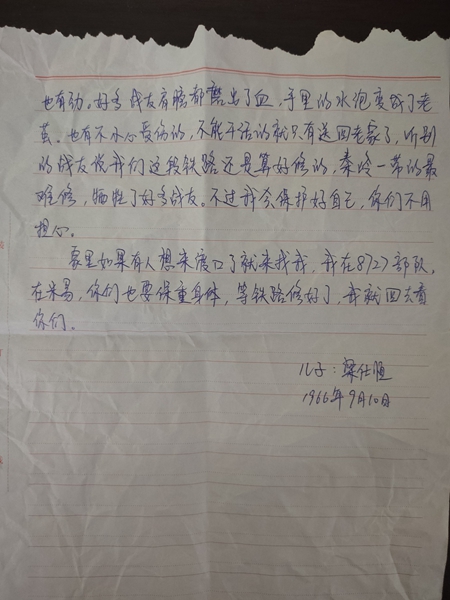 也有劲。好多战友肩膀都磨出了血，手里的水泡变成了老
茧。也有不小心受伤的，不能干活的就只有送回老家了，听别
的战友说我们这段铁路还是算好修的，秦岭一带的最
难修，牺牲了好多战友。不过我会保护好自己，你们不用
担心。
家里如果有人想来渡口了就来找我，我在8727部队，
在米易，你们也要保重身体，等铁路修好了，我就回去看
你们。
儿子：梁仕恒
1966年9月10日